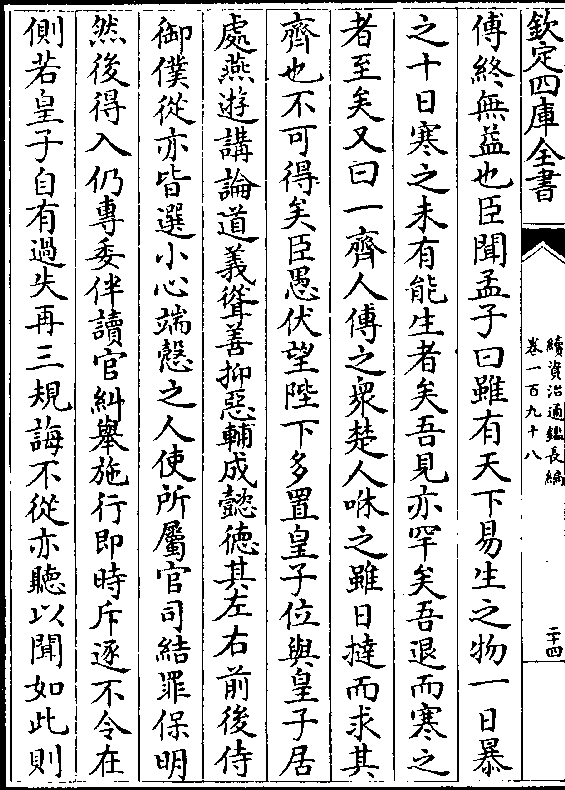 欽定四庫全書
續資治通鑑長編
卷一百九十八
二十四
傅終無益也臣聞孟子曰雖有天下易生之物一日暴
之十日寒之未有能生者矣吾見亦罕矣吾退而寒之
者至矣又曰一齊人傅之衆楚人咻之雖日撻而求其
齊也不可得矣臣愚伏望陛下多置皇子位與皇子居
處燕遊講論道義聳善抑惡輔成懿徳其左右前後侍
御僕從亦皆選小心端慤之人使所屬官司結罪保明
然後得入仍專委伴讀官糾舉施行即時斥逐不令在
側若皇子自有過失再三規誨不從亦聽以聞如此則